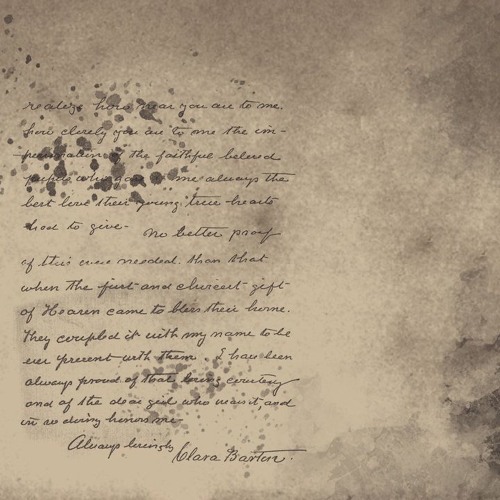 realize how near you are to me.
how closely you are to me the im-
personation of the faithful beloved
pupils who gave me always the
best love their young true hearts
had to give- No better proof
of this ever needed than that
when the first and choicest gift
of Heaven came to bless their home.
They coupled it with my name to be
ever present with them. I have been
always proud of that loving courtesy
and of the dear girl who wears it, and
in so doing honors me-
Always lovingly
Clara Barton.